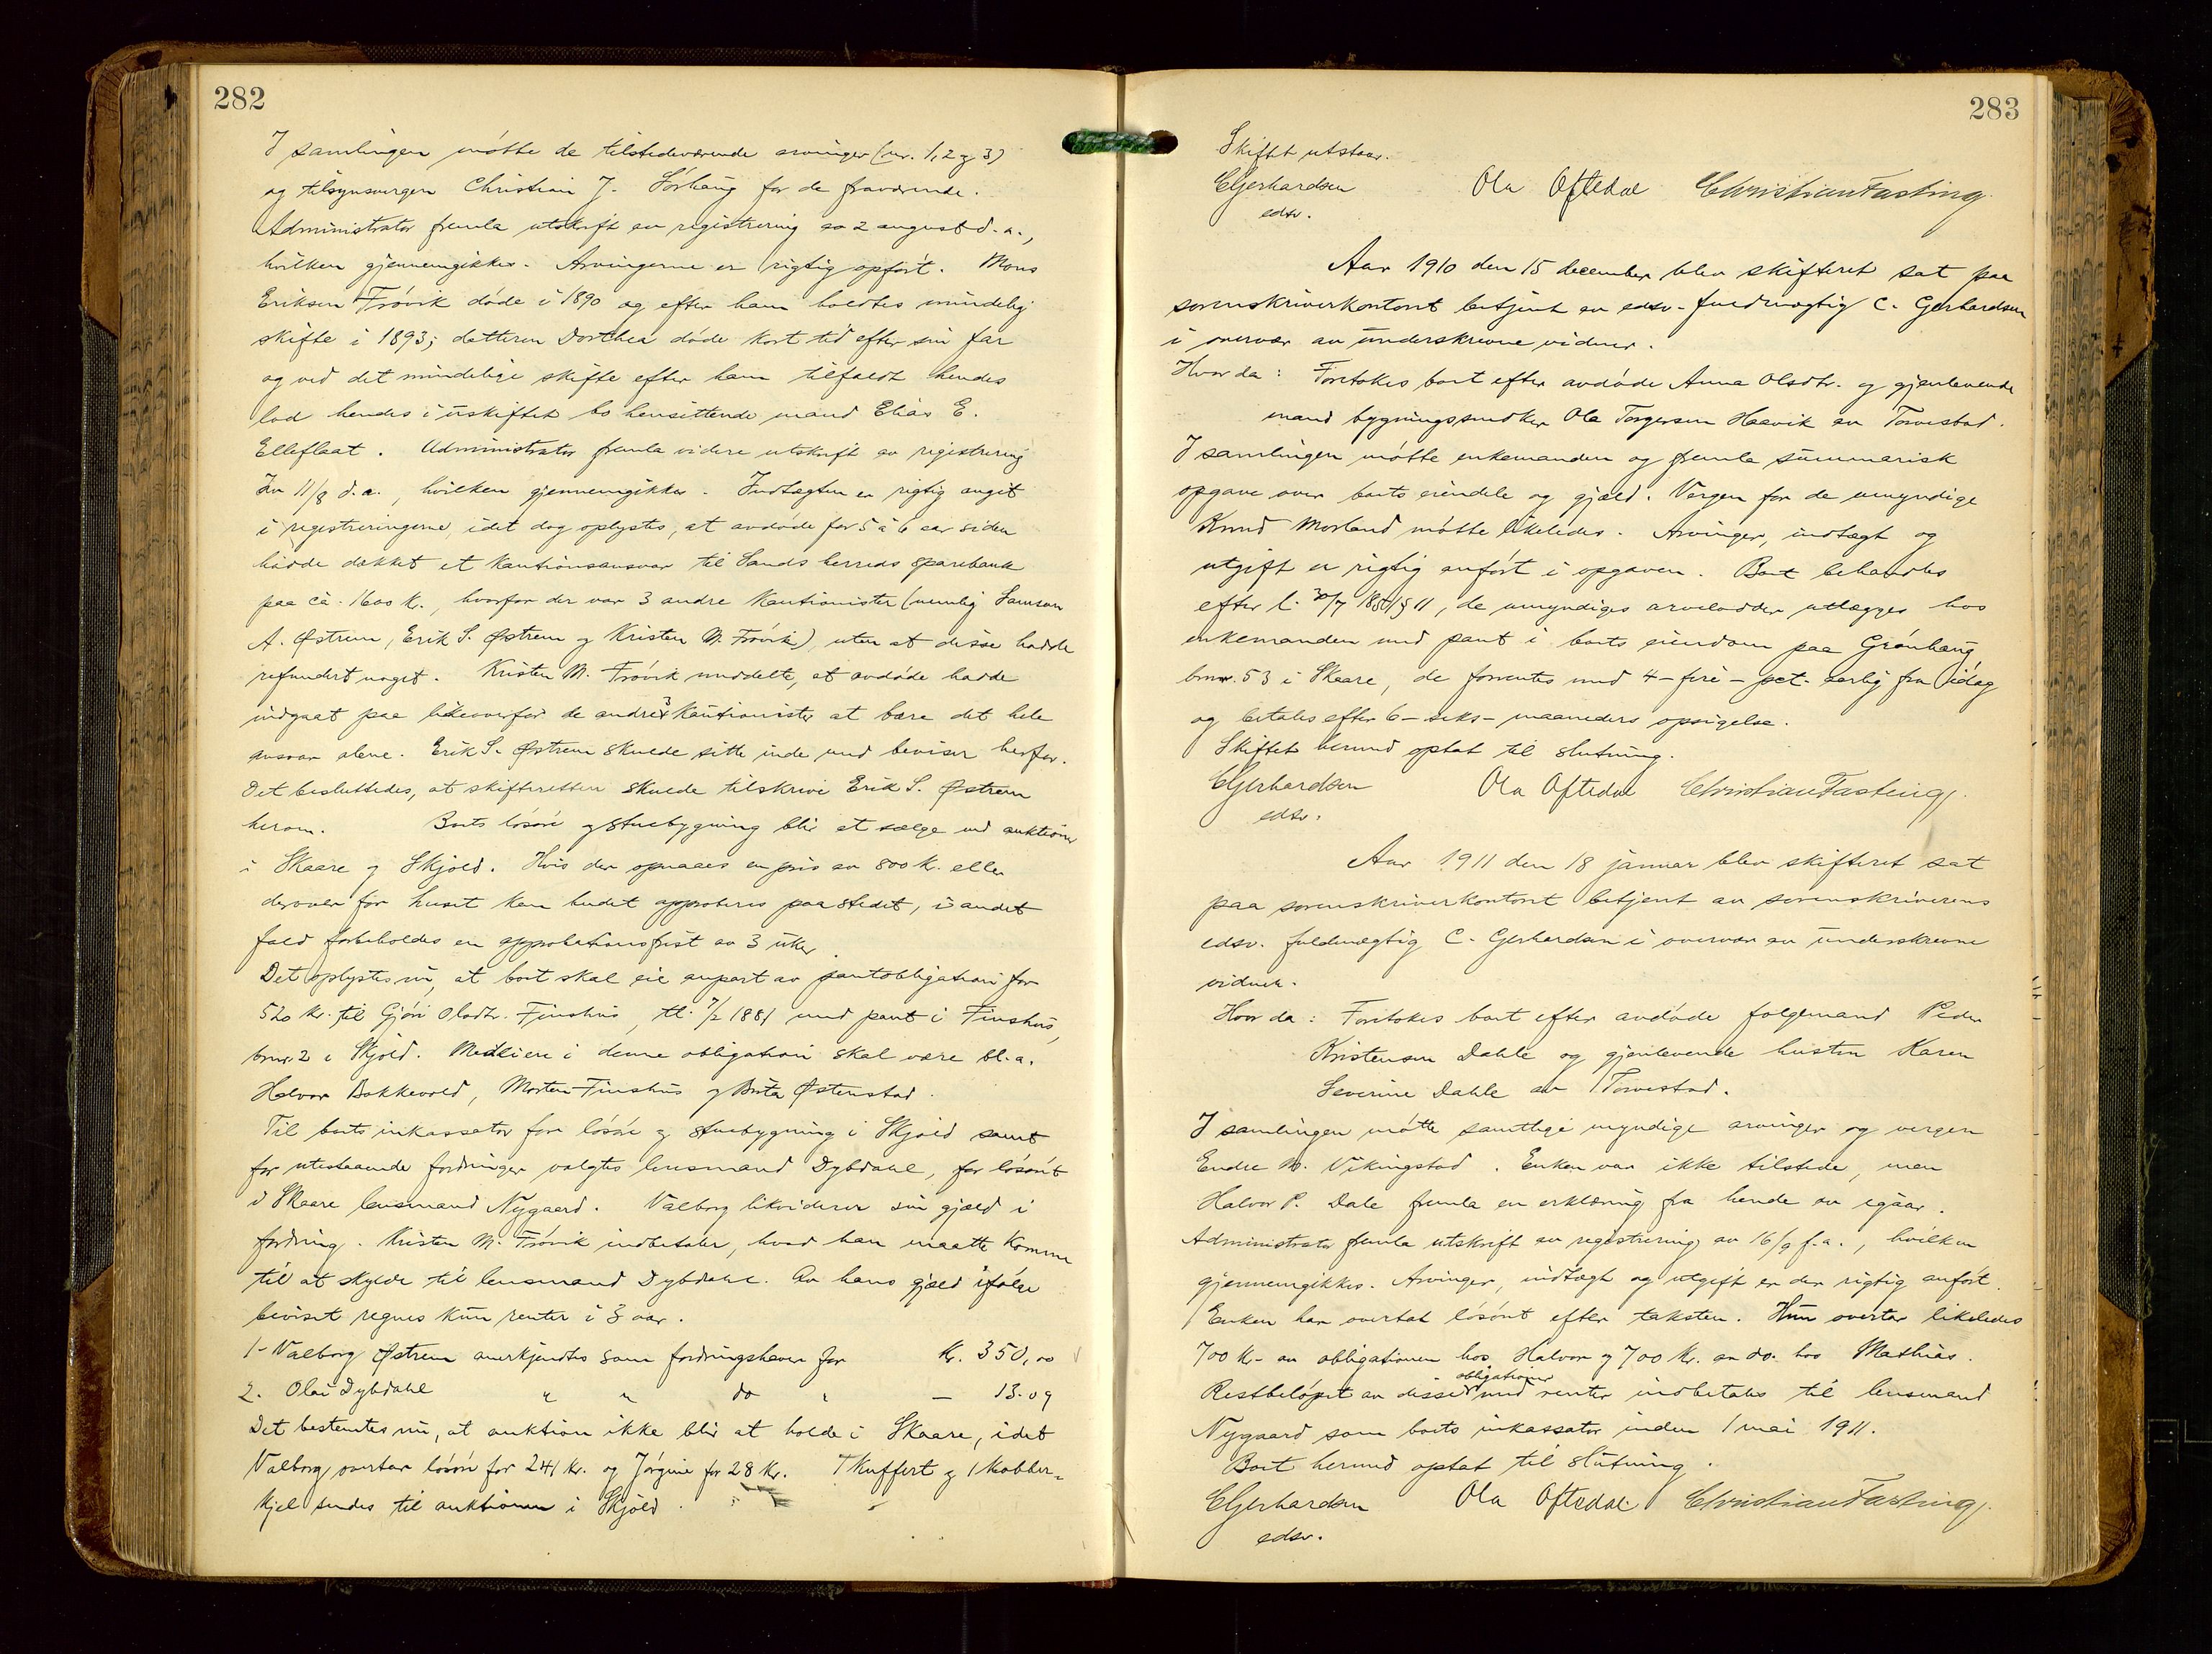 282
I samlingen møtte de tilstedeværende arvinger (nr. 1, 2 og 3)
og tilsynsvergen Christian J. Sørhaug for de fraværende.
Administrator fremla utskrift av registrering av 2 august d.a.,
hvilken gjennemgikkes. Arvingerne er rigtig opført. Mons
Eriksen Frøvik døde i 1890 og efter ham holdtes mindelig
skifte i 1893; datteren Dorthea døde kort tid efter sin far
og ved det mindelige skifte efter ham tilfaldt hendes
lod hendes i uskiftet bo hensittende mand Elias E.
Elleflaat. Administrator fremla videre utskrift av registrering
av 11/8 d.a., hvilken gjennemgikkes. Indtægten er rigtig anget
i registreringerne, idet dog oplystes, at avdøde for 5 à 6 aar siden
hadde dækket et kautionsansvar til Sands herreds sparebank
paa ca. 1600 kr., hvorfor der var 3 andre kautionister (nemlig Samson
A. Østrem, Erik S. Østrem og Kristen M. Frøvik), uten at disse hadde
refundert noget. Kristen M. Frøvik meddelte, at avdøde hadde
indgaat paa likeoverfor de andre 3 kautionister at bære det hele
ansvar alene. Erik S. Østrem skulde sitte inde med beviser herfor.
Det besluttedes, at skifteretten skulde tilskrive Erik S. Østrem
herom. Boets løsøre og stuebygning blir at sælge ved auktioner
i Skaare og Skjold. Hvis der opnaaes en pris av 800 kr. eller
derover for huset kan budet approberes paa stedet, i andet
fald forbeholdes en approbationsfrist av 3 uker.
Det oplystes nu, at boet skal eie anpart av pantobligation for
520 kr. til Gjøri Olsdtr. Finshus, tl. 7/2 1881 med pant i Finshus,
brnr. 2 i Skjold. Medeiere i denne obligation skal være bl.a.
Halvor Bakkevold, Morten Finshus og Brita Østenstad.
Til boets inkassator for løsøre og stuebygning i Skjold samt
for utestaaende fordringer valgtes lensmand Dybdahl, for løsøret
i Skaare lensmand Nygaard. Valborg likviderer sin gjæld i
fordring. Kristen M. Frøvik indbetaler, hvad han maatte komme
til at skylde til lensmand Dybdahl. Av hans gjæld ifølge
beviset regnes kun renter i 3 aar.
1- Valborg Østrem anerkjendtes som fordringshaver for Kr. 350,00
2. Olai Dybdahl " " do " — 13.09
Det bestemtes nu, at auktion ikke blir at holde i Skaare, idet
Valborg overtar løsøre for 241 kr. og Jørgine for 28 kr. 1 kuffert og 1 kobber-
kjel sendes til auktionen i Skjold.
283
Skiftet utstaar.
CGerhardsen Ola Oftedal Christian Fasting
edsv.
Aar 1910 den 15 december blev skifteret sat paa
sorenskriverkontoret betjent av edsv. fuldmægtig C. Gerhardsen
i overvær av underskrevne vidner.
Hvor da: Foretokes boet efter avdøde Anna Olsdtr. og gjenlevende
mand bygningssnedker Ole Torgersen Haavik av Torvestad.
I samlingen møtte enkemanden og fremla summarisk
opgave over boets eiendele og gjæld. Vergen for de umyndige
Knud Morland møtte likeledes. Arvinger, indtægt og
utgift er rigtig anført i opgaven. Boet behandles
efter l. 30/7 1851 § 11, de umyndiges arvelodder utlægges hos
enkemanden med pant i boets eiendom paa Grønhaug
brnr. 53 i Skaare, de forrentes med 4 - fire - pct. aarlig fra idag
og betales efter 6 - seks - maaneders opsigelse.
Skiftet hermed optat til slutning.
CGerhardsen Ola Oftedal Christian Fasting
edsv.
Aar 1911 den 18 januar blev skifteret sat
paa sorenskriverkontoret betjent av sorenskriverens
edsv. fuldmægtig C. Gerhardsen i overvær av underskrevne
vidner.
Hvor da: Foretokes boet efter avdøde folgemand Peder
Kristensen Dahle og gjenlevende hustru Karen
Severine Dahle av Torvestad.
I samlingen møtte samtlige myndige arvinger og vergen
Endre M. Vikingstad. Enken var ikke tilstede, men
Halvor P. Dale fremla en erklæring fra hende av igaar.
Administrator fremla utskrift av registrering av 16/9 f.a., hvilken
gjennemgikkes. Arvinger, indtægt og utgift er der rigtig anført.
Enken har overtat løsøret efter taksten. Hun overtar likeledes
700 kr. av obligationen hos Halvor og 700 kr. av do. hos Mathias.
Restbeløpet av disse obligationer med renter indbetales til lensmand
Nygaard som boets inkassator inden 1 mai 1911.
Boet hermed optat til slutning.
CGerhardsen Ola Oftedal Christian Fasting
edsv.